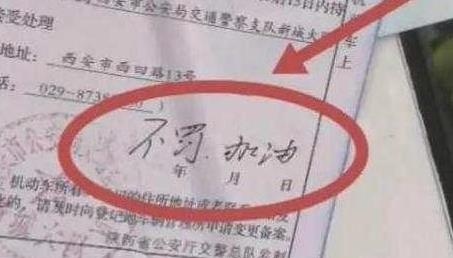 西安市公安局交通警察支队新城大
15日内持
车
上
接受处理
地址: 西安市西四路13号
话: 029-8738
不罚.加油
年 月 日
机动车所有
的住所地址或者
的,请及时向登记地车辆管理所申请变更备案。
陕西省公安厅交警总队监制